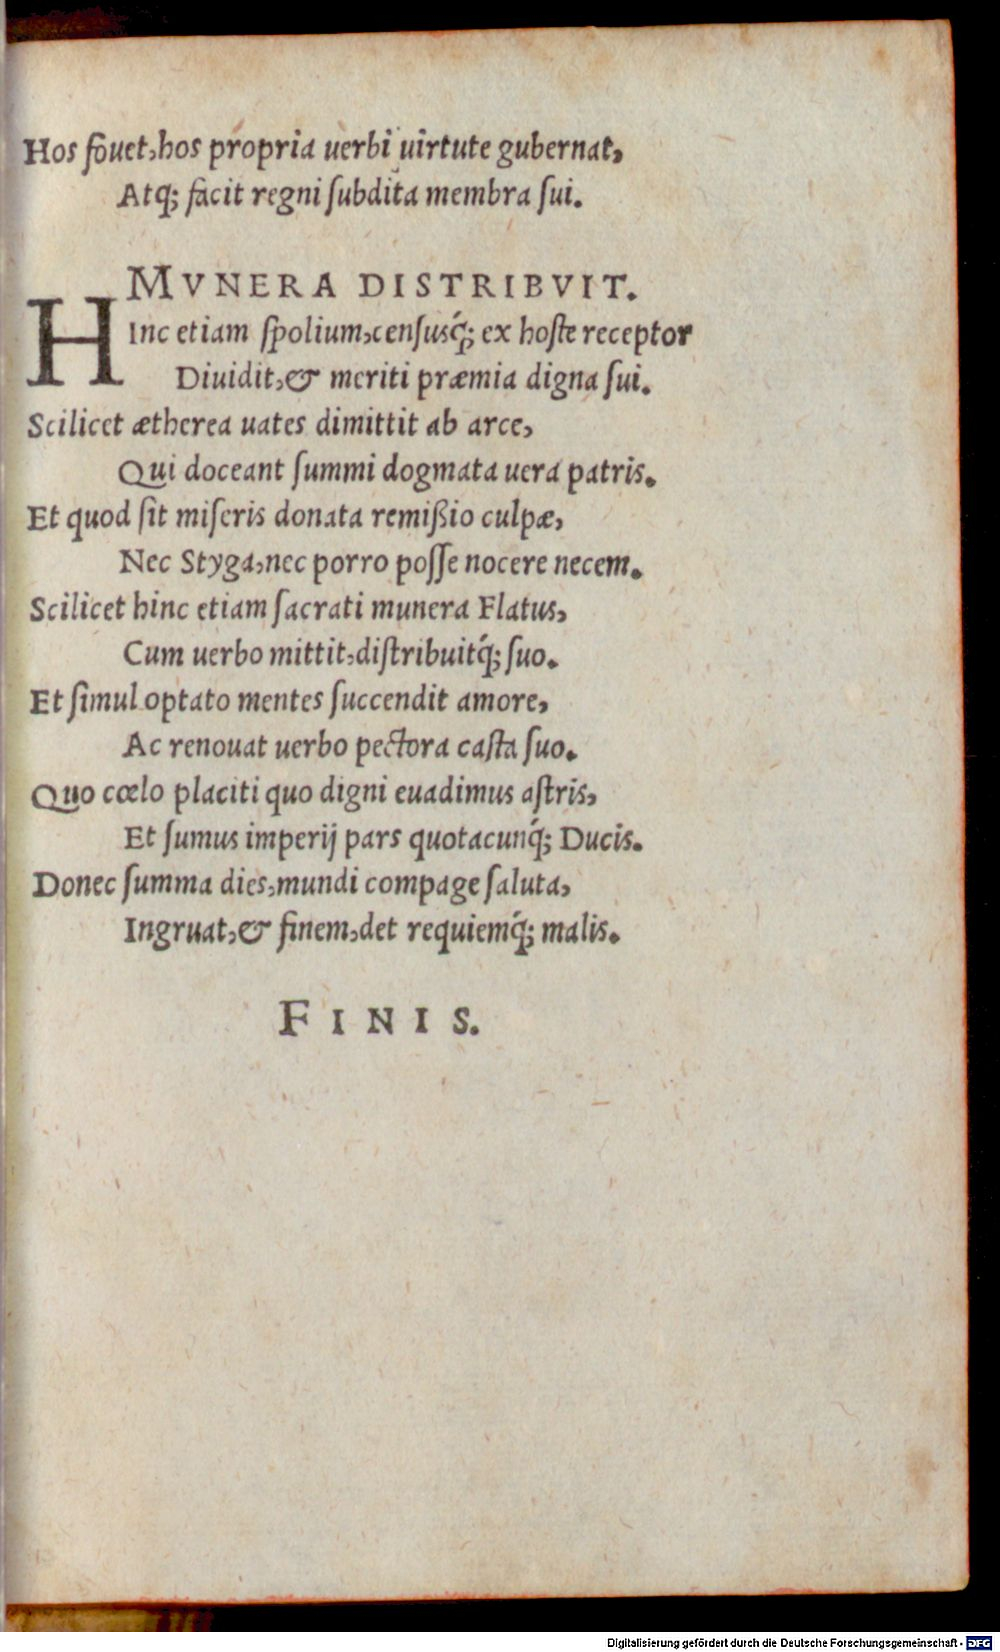 Hos fouet, hos propria uerbi uirtute gubernat,
Atq; facit regni ſubdita membra ſui.
MVNERA DISTRIBVIT.
HInc etiam ſpolium, cenſusq́; ex hoſte receptor
Diuidit, & meriti præmia digna ſui.
Scilicet ætherea uates dimittit ab arce,
Qui doceant ſummi dogmata uera patris.
Et quod ſit miſeris donata remißio culpæ,
Nec Styga, nec porro poſſe nocere necem.
Scilicet hinc etiam ſacrati munera Flatus,
Cum uerbo mittit, diſtribuitq́; ſuo.
Et ſimul optato mentes ſuccendit amore,
Ac renouat uerbo pectora caſta ſuo.
Quo cœlo placiti quo digni euadimus aſtris,
Et ſumus imperij pars quotacunq́; Ducis.
Donec ſumma dies, mundi compage ſaluta,
Ingruat, & finem, det requiemq́; malis.
FINIS.
Digitalisierung gefördert durch die Deutsche Forschungsgemeinschaft - DFG